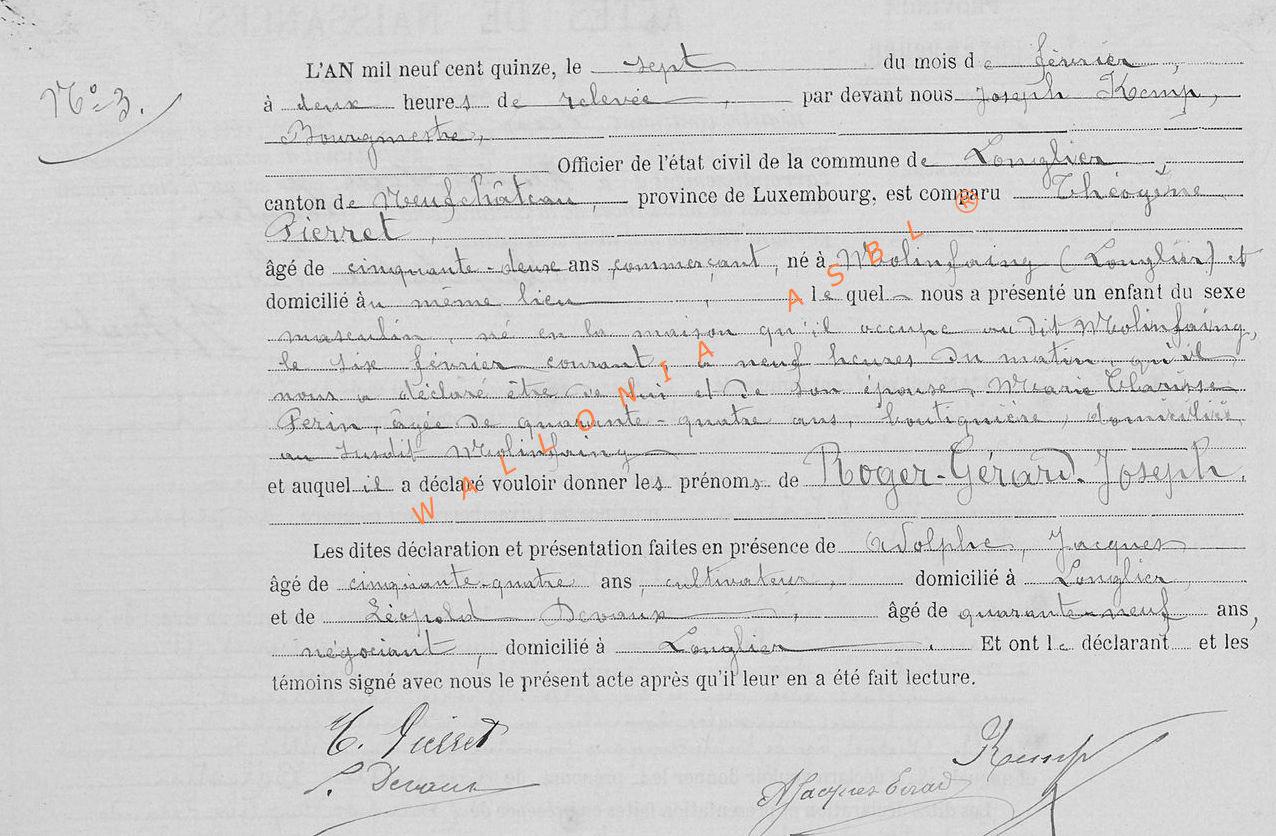 N° 3.
L'AN mil neuf cent quinze, le sept du mois de février,
à deux heures de relevée, par devant nous Joseph Kemp,
Bourgmestre,
Officier de l'état civil de la commune de Longlier,
canton de Neufchâteau, province de Luxembourg, est comparu Théogène
Pierret,
âgé de cinquante-deux ans, commerçant, né à Molinfaing (Longlier) et
domicilié au même lieu, lequel nous a présenté un enfant du sexe
masculin, né en la maison qu'il occupe au dit Molinfaing,
le six février courant, à neuf heures du matin, qu'il
nous a déclaré être de lui et de son épouse, Marie Clarisse
Perin, âgée de quarante-quatre ans, boutiquière, domiciliée
au susdit Molinfaing
et auquel il a déclaré vouloir donner les prénoms de Roger-Gérard-Joseph.
Les dites déclaration et présentation faites en présence de Adolphe, Jacques
âgé de cinquante-quatre ans, cultivateur, domicilié à Longlier
et de Léopold Devaux, âgé de quarante-neuf ans,
négociant, domicilié à Longlier. Et ont le déclarant et les
témoins signé avec nous le présent acte après qu'il leur en a été fait lecture.
T. Pierret
Kemp
L. Devaux
A Jacques
WALLONIA ASBL ®